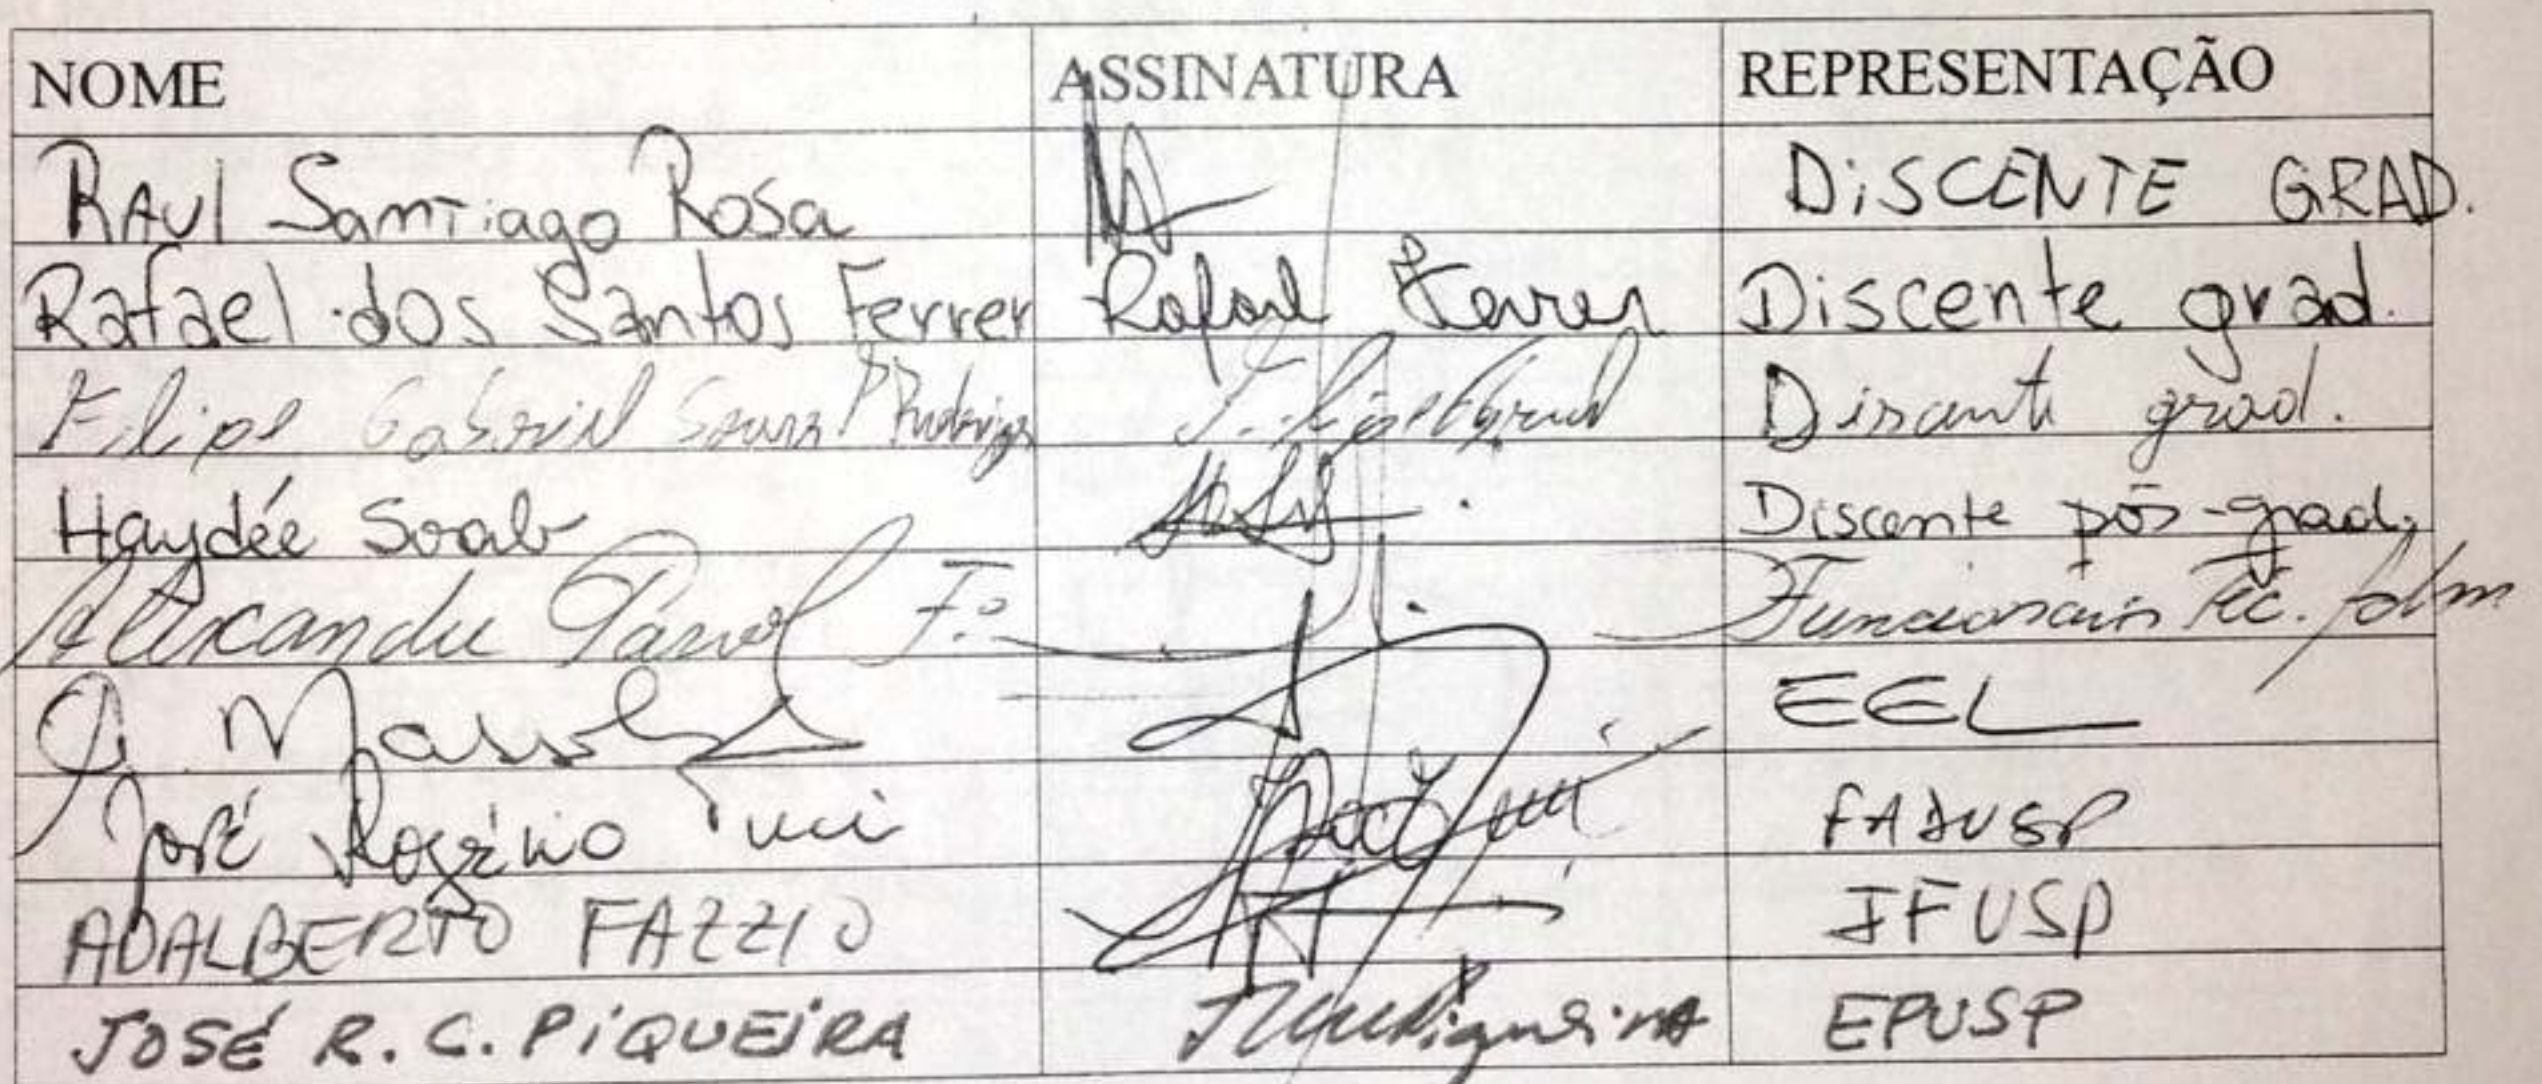 NOME ASSINATURA REPRESENTAÇÃO
RAUl Santiago Rosa DiSCENTE GRAD.
Rafael dos Santos Ferrer Rafael Ferrer Discente grad.
Filipe Gabriel Souza Rodrigues Discente grad.
Haydée Svab Discente pós-grad.
Alexandre F.o Funcionários Téc. Adm
EEL
José Rogério FADUSP
ADALBERTO FAZZIO IFUSP
JOSÉ R. C. PiQUEiRA Piqueira EPUSP